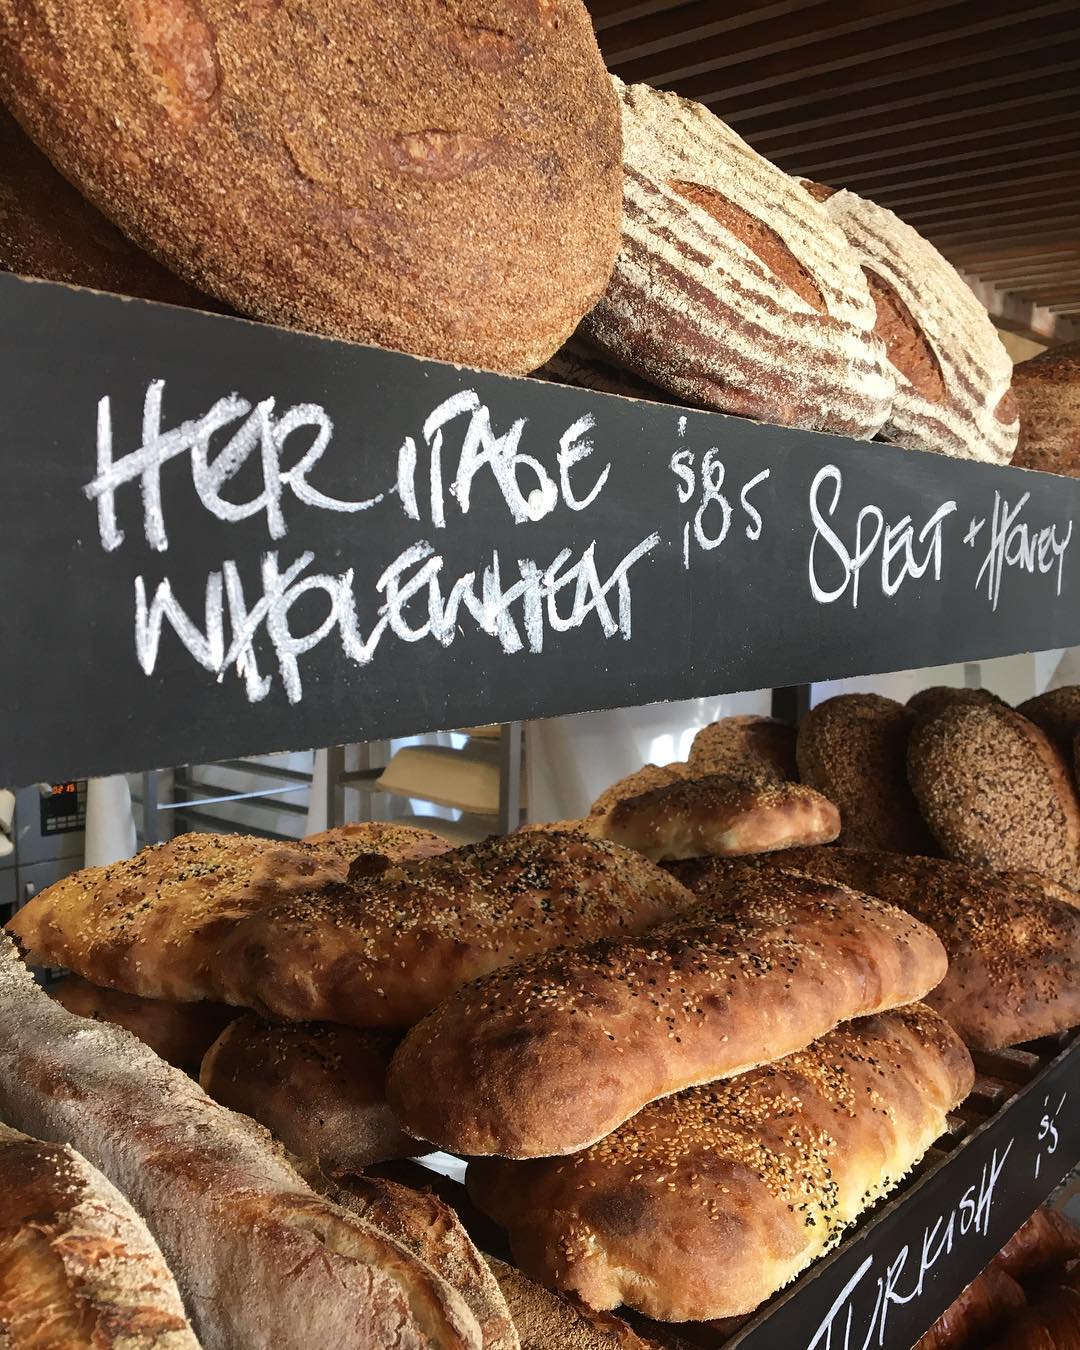 HERITAGE
WHOLEWHEAT
SPELT + HONEY
TURKISH $5